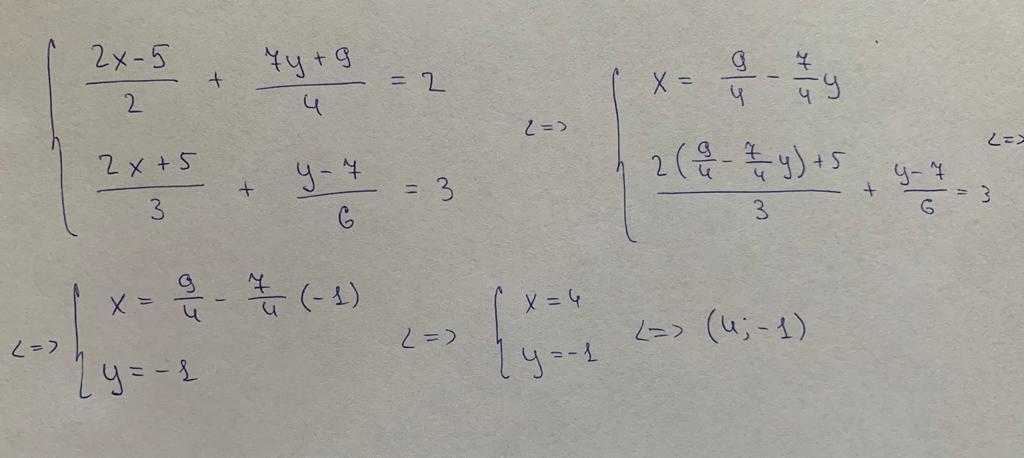 { (2x-5)/2 + (7y+9)/4 = 2
(2x+5)/3 + (y-7)/6 = 3
<=> { x = 9/4 - 7/4 y
(2(9/4 - 7/4 y)+5)/3 + (y-7)/6 = 3 <=>
<=> { x = 9/4 - 7/4 (-1)
y = -1
<=> { x = 4
y = -1
<=> (4; -1)